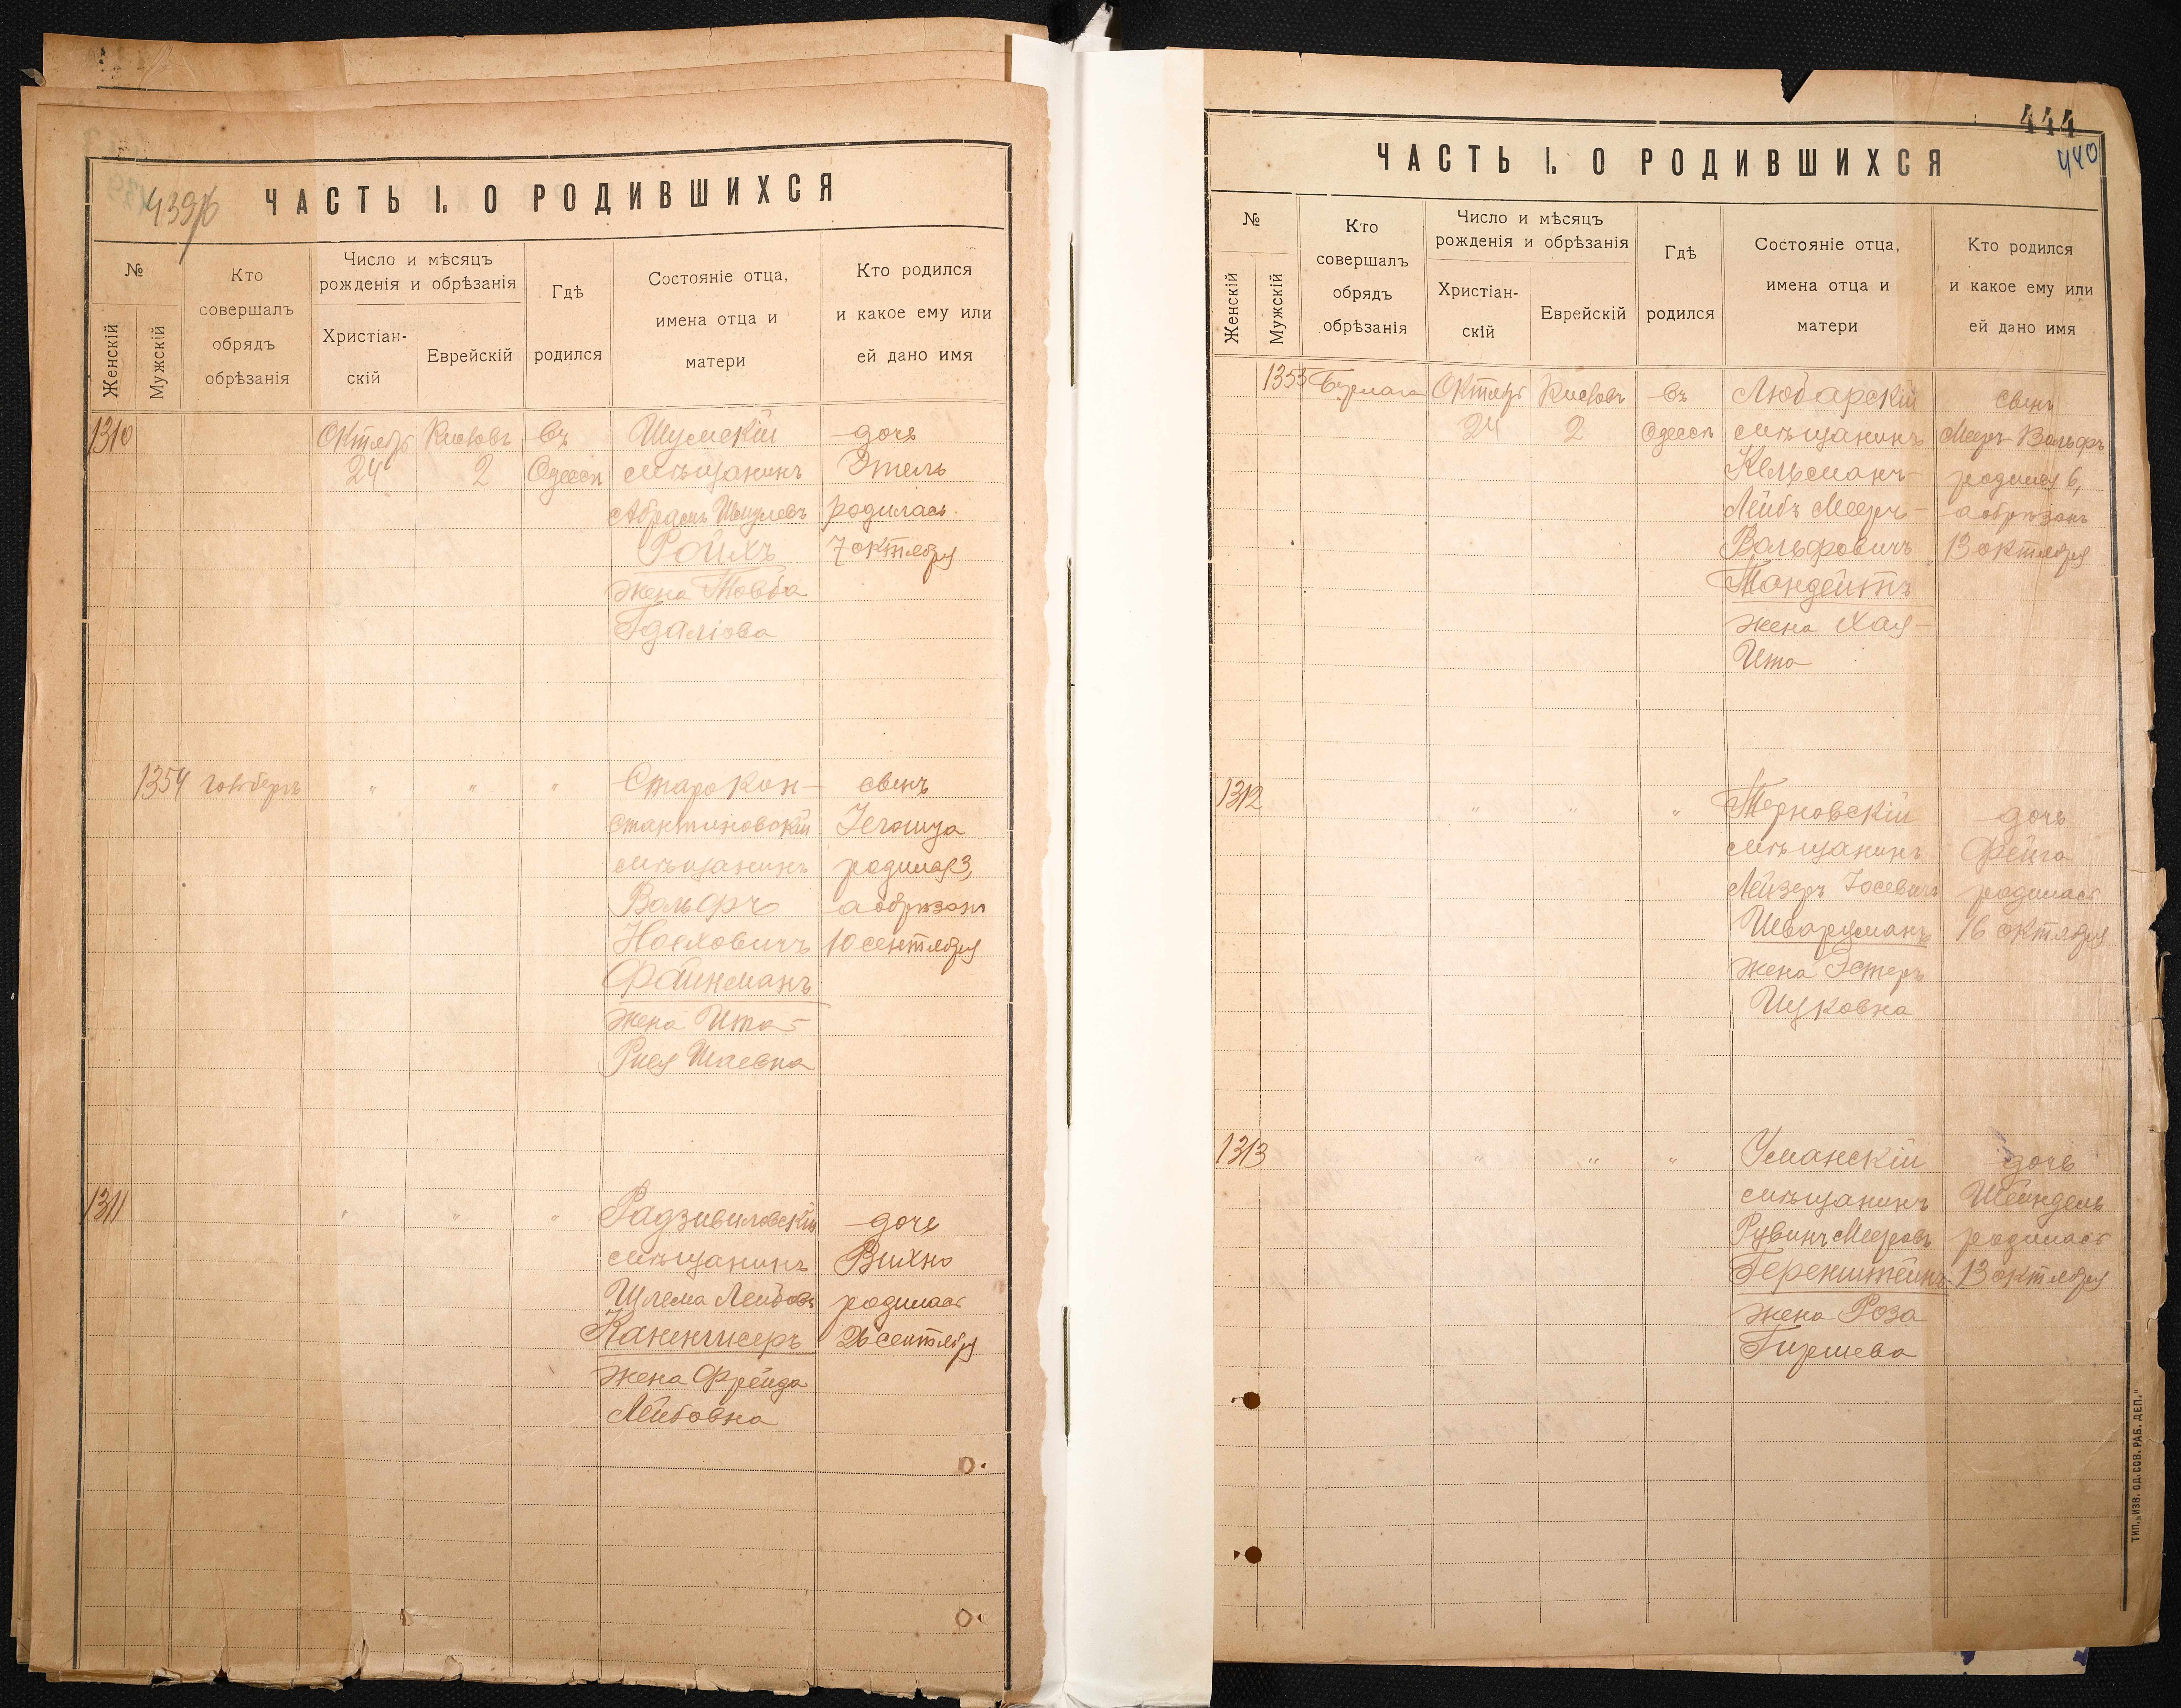 439б
ЧАСТЬ I. О РОДИВШИХСЯ
№
Женскій
Мужскій
Кто
совершалъ
обрядъ
обрѣзанія
Число и мѣсяцъ
рожденія и обрѣзанія
Христіан-
скій
Еврейскій
Гдѣ
родился
Состояніе отца,
имена отца и
матери
Кто родился
и какое ему или
ей дано имя
1310
Октябр
24
2
въ
Одессѣ
Шумскій
мѣщанинъ
Абрамъ
Ройхъ
жена Товба
Гдаліова
дочь
Этель
родилась
7 октября
1354
"
"
"
Старокон-
стантиновскій
мѣщанинъ
Вольфъ
Ноеховичъ
Файнманъ
жена Ита-
Рися Шаевна
сынъ
Іегошуа
родился 3,
а обрѣзанъ
10 сентября
1311
"
"
"
Радзивиловскій
мѣщанинъ
Шлема Лейбовъ
Каненгисеръ
жена Фрейда
Лейбовна
дочь
Вихна
родилась
26 сентября
444
440
ЧАСТЬ I. О РОДИВШИХСЯ
№
Женскій
Мужскій
Кто
совершалъ
обрядъ
обрѣзанія
Число и мѣсяцъ
рожденія и обрѣзанія
Христіан-
скій
Еврейскій
Гдѣ
родился
Состояніе отца,
имена отца и
матери
Кто родился
и какое ему или
ей дано имя
1353
Бурлака
Октябр
24
2
въ
Одессѣ
Любарскій
мѣщанинъ
Кельманъ-
Лейбъ Мееръ-
Вольфовичъ
Мандейтъ
жена Хая-
Ита
сынъ
Мееръ-Вольфъ
родился 6,
а обрѣзанъ
13 октября
1312
"
"
"
Терновскій
мѣщанинъ
Лейзеръ Іосевичъ
Шварцманъ
жена Эстеръ
Ицковна
дочь
Фейга
родилась
16 октября
1313
"
"
"
Уманскій
мѣщанинъ
Рувинъ Мееровъ
Геренштейнъ
жена Роза
Гиршева
дочь
Шейндель
родилась
13 октября
ТИП. „ИЗВ. ОД. СОВ. РАБ. ДЕП."